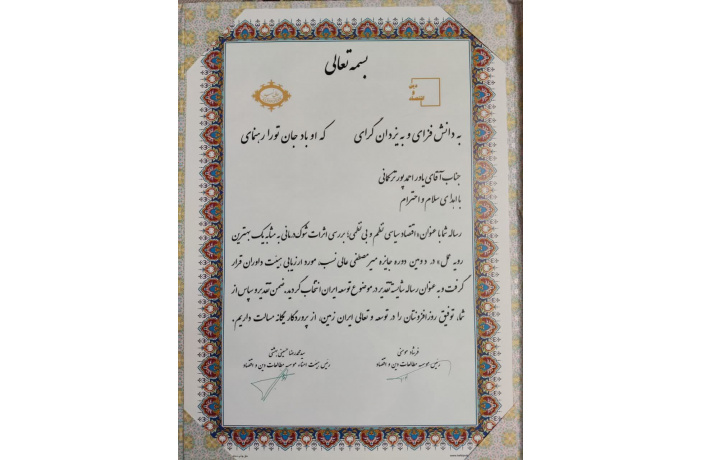 بسمه تعالی
دین
و
اقتصاد
به دانش فزای و به یزدان گرای که او باد جان تو را رهنمای
جناب آقای یاور احمدپور ترکمانی
با اهدای سلام و احترام
رساله شما با عنوان «اقتصاد سیاسی نظم و بی نظمی؛ بررسی اثرات شوک درمانی به مثابه یک بهترین
رویه عمل» در دومین دوره جایزه میرمصطفی عالی نسب، مورد ارزیابی هیئت داوران قرار
گرفت و به عنوان رساله شایسته تقدیر در موضوع توسعه ایران انتخاب گردید، ضمن تقدیر و سپاس از
شما، توفیق روزافزونتان را در توسعه و تعالی ایران زمین، از پروردگار یگانه مسالت داریم.
فرشاد مومنی
رئیس موسسه مطالعات دین و اقتصاد
سید محمدرضا حسینی بهشتی
رئیس هیئت امناء موسسه مطالعات دین و اقتصاد